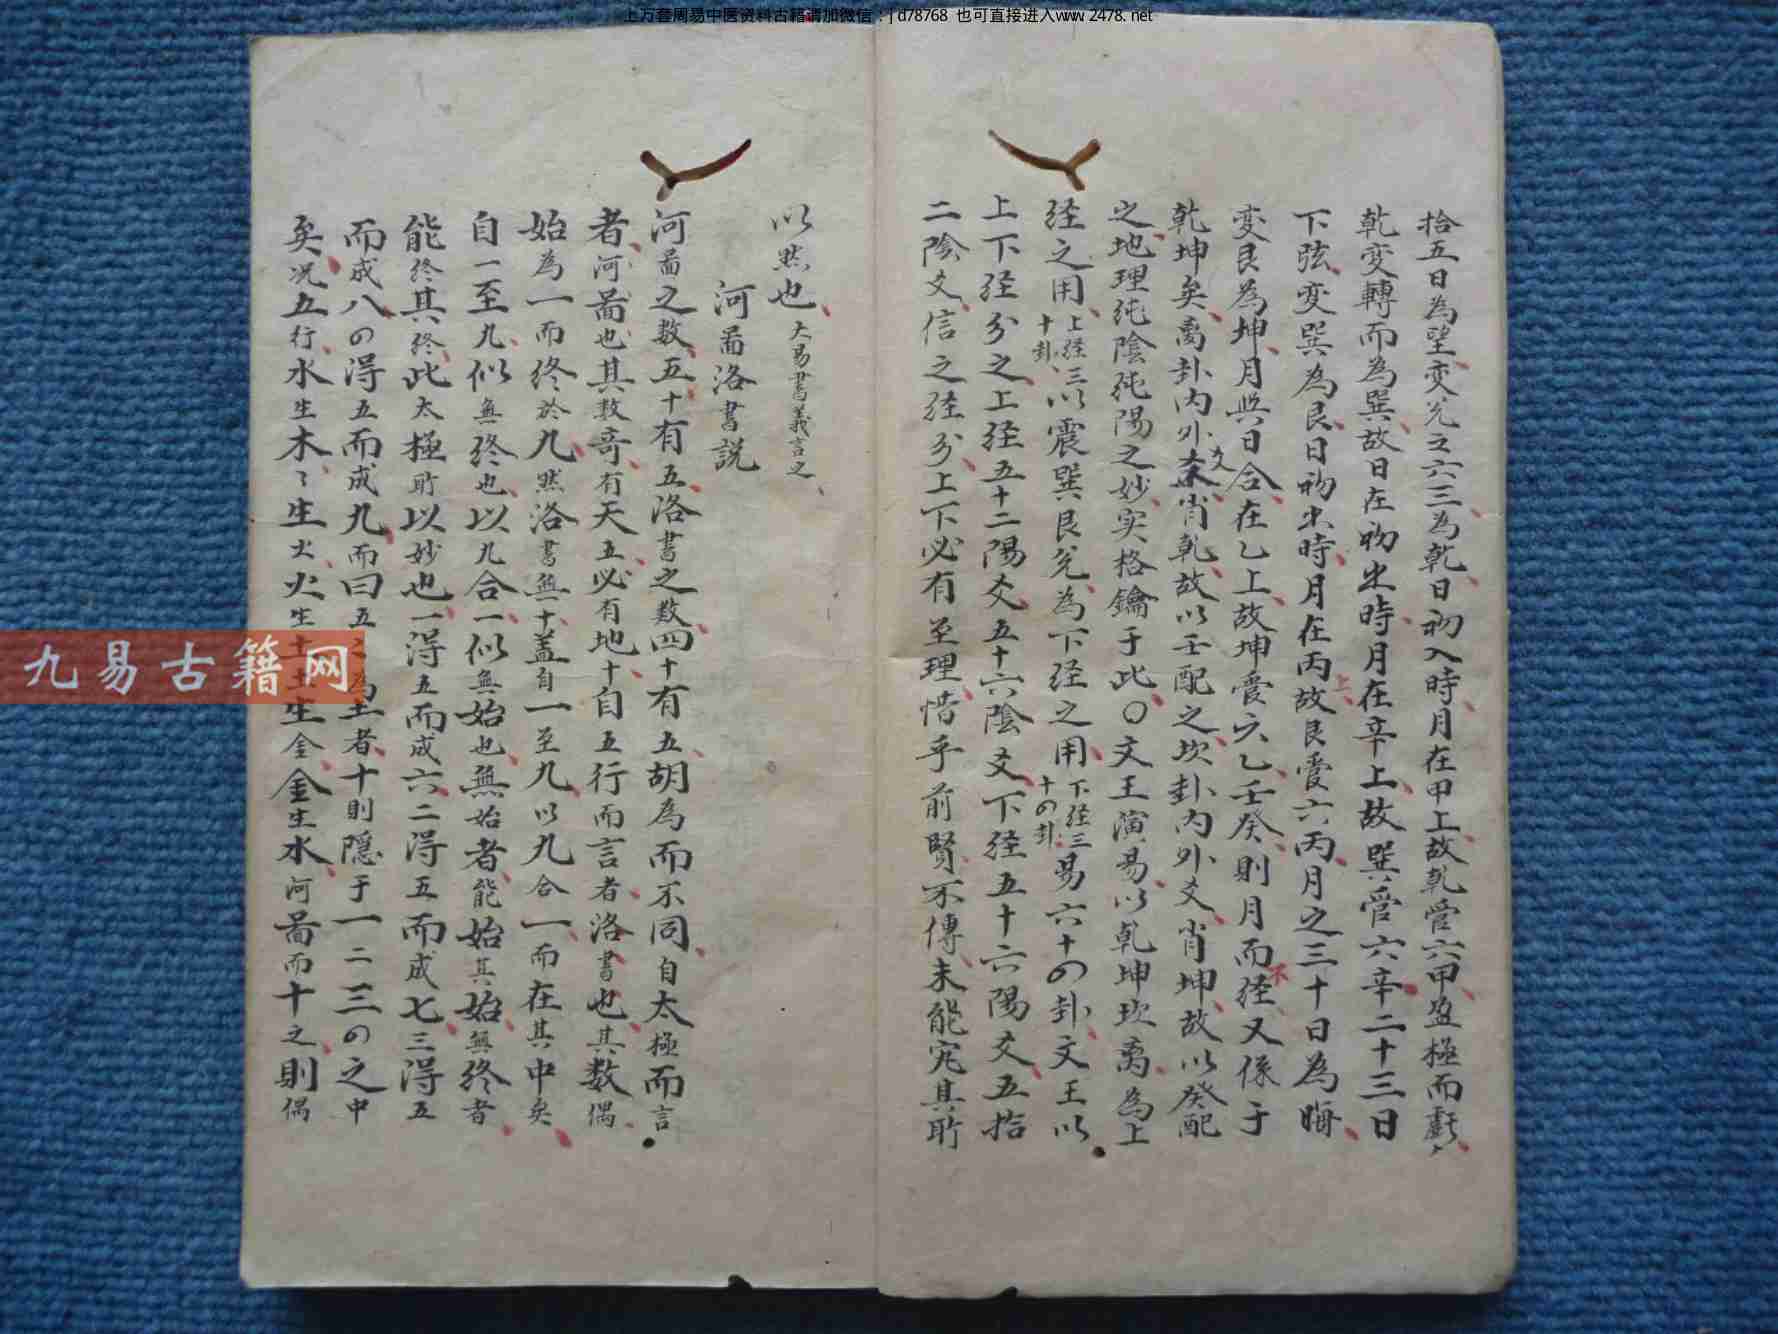 上万套周易中医资料古籍请加微信：jd78768 也可直接进入www.2478.net
拾五日為望变兊之六三為乾日初入時月在甲上故乾管六甲盈極而虧
乾变轉而為巽故日在初出時月在辛上故巽管六辛二十三日
下弦变巽為艮日初出時月在丙上故艮管六丙月之三十日為晦
变艮為坤月與日合在乙上故坤管六乙壬癸則月而不经又係于
乾坤矣离卦内外爻肖乾故以壬配之坎卦内外爻肖坤故以癸配
之地理纯陰纯陽之妙实格鑰于此〇文王演易以乾坤坎离為上
经之用上经三十卦以震巽艮兊為下经之用下经三十四卦易六十四卦文王以
上下经分之上经五十二陽爻五十六陰爻下经五十六陽爻五拾
二陰爻信之经分上下必有至理惜乎前賢不傳未能究其所
以然也大易書義言之
河啚洛書説
河啚之数五十有五洛書之数四十有五胡為而不同自太極而言
者河啚也其数竒有天五必有地十自五行而言者洛書也其数偶
始為一而终於九然洛書無十盖自一至九以九合一而在其中矣
自一至九似無终也以九合一似無始也無始者能始其始無终者
能终其终此太極所以妙也一得五而成六二得五而成七三得五
而成八四得五而成九而曰五之為主者十則隱于一二三四之中
矣况五行水生木木生火火生土土生金金生水河啚而十之則偶
九易古籍网